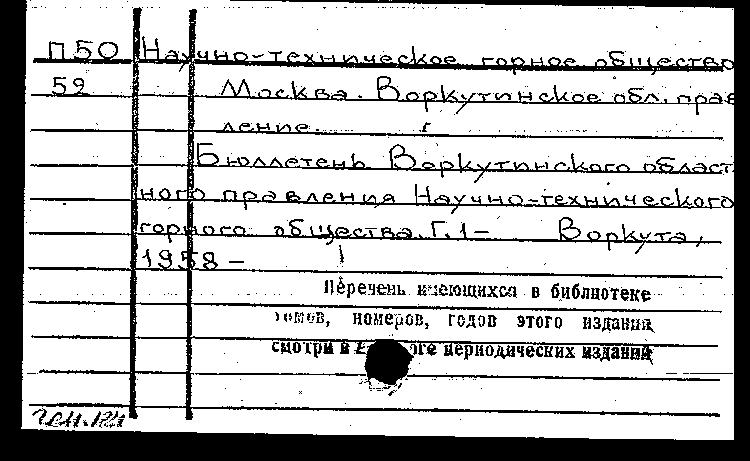 П50 Научно-техническое горное общество
52 Москва. Воркутинское обл. прав
ление.
Бюллетень Воркутинского област
ного правления Научно-технического
горного общества. Г.1- Воркута,
1958-
Перечень имеющихся в библиотеке
томов, номеров, годов этого издания
смотри в периодических изданий